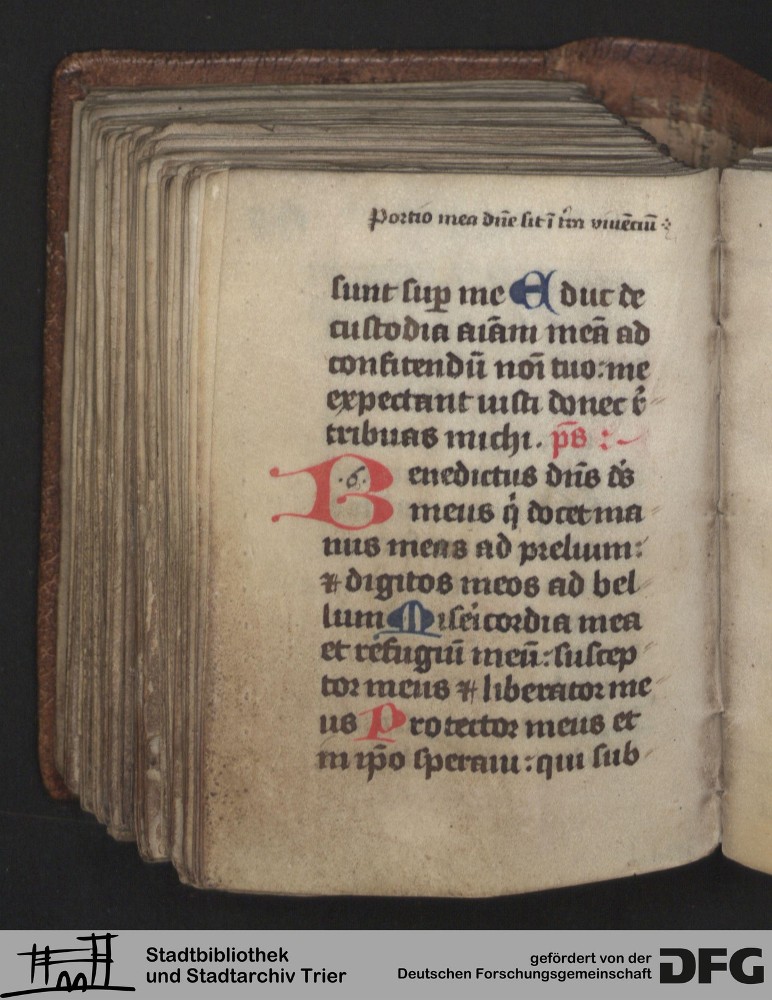 Portio mea dn̄e sit ī t̄ra viuēciū
sunt sup̱ me Educ de
custodia aīam meā ad
confitendū noī tuo: me
expectant iusti donec r̄
tribuas michi. p̄s
.6.
Benedictus dn̄s ds̄
meus q̇ docet ma
nus meas ad prelium:
⁊ digitos meos ad bel
lum Misēicordia mea
et refugiū meū: suscep
tor meus ⁊ liberator me
us Protector meus et
in ip̄o speraui: qui sub
Stadtbibliothek
und Stadtarchiv Trier
gefördert von der
Deutschen Forschungsgemeinschaft
DFG